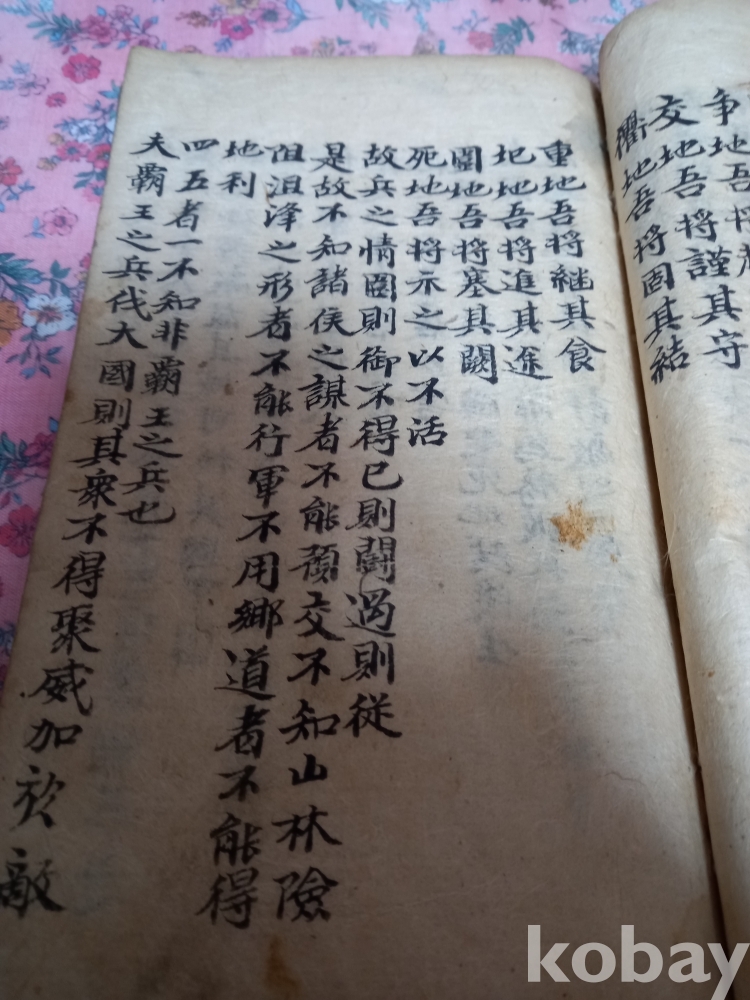 争地吾將
交地吾將謹其守
衢地吾將固其結
重地吾將継其食
圯地吾將進其途
圍地吾將塞其闕
死地吾將示之以不活
故兵之情圍則御不得已則闘過則從
是故不知諸侯之謀者不能預交不知山林險
阻沮澤之形者不能行軍不用鄉道者不能得
地利
四五者一不知非霸王之兵也
夫霸王之兵伐大國則其衆不得聚威加於敵
kobay